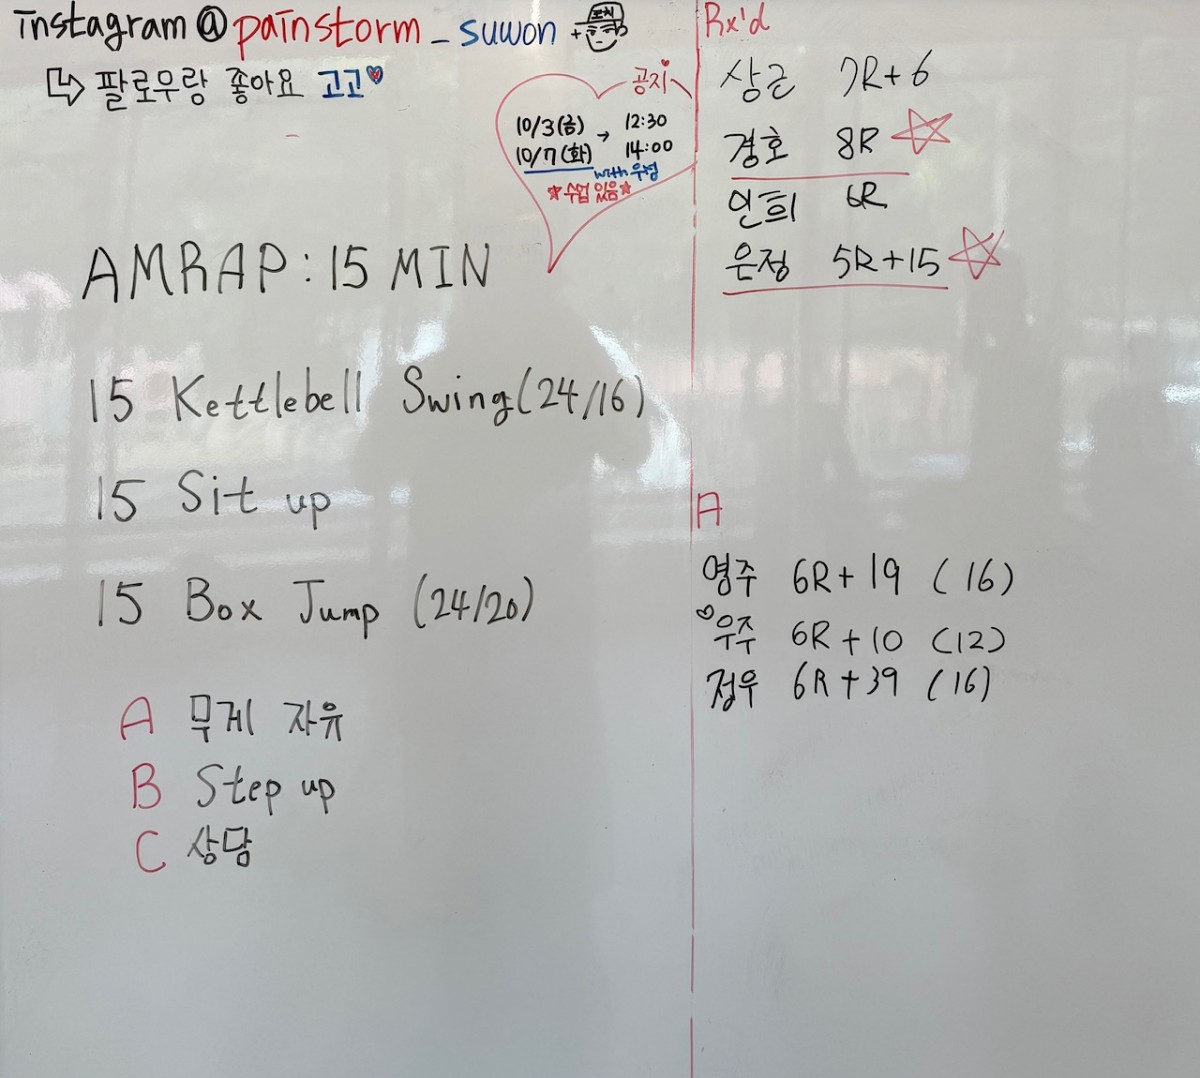 Instagram @ painstorm _ suwon +
팔로우랑 좋아요 고고
공지
10/3 (금) → 12:30
10/7 (화) 14:00
with 우정
☆수업 있음☆
AMRAP : 15 MIN
15 Kettlebell Swing (24/16)
15 Sit up
15 Box Jump (24/20)
A 무게 자유
B Step up
C 상담
Rx'd
상근 7R+6
경호 8R ☆
인희 6R
은정 5R+15 ☆
A
영주 6R+19 (16)
♡우주 6R+10 (12)
정우 6R+39 (16)